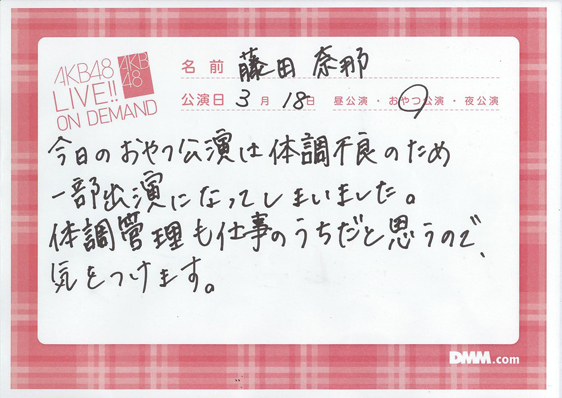 AKB48
LIVE!!
ON DEMAND
AKB
48
名前 藤田奈那
公演日 3月18日 昼公演・おやつ公演・夜公演
今日のおやつ公演は体調不良のため
一部出演になってしまいました。
体調管理も仕事のうちだと思うので、
気をつけます。
DMM.com